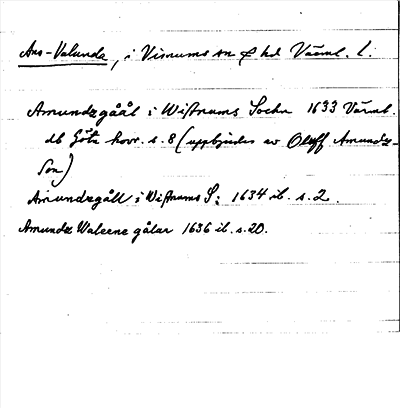 Ans-Valunda, i Visnums sn o hd Värml. l.
Amundzgåål i Wissnums Sochn 1633 Värml.
db Göta hovr. s. 8 (uppbjudes av Oluff Amundz-
son)
Amundzgåll i Wissnums S: 1634 ib. s. 2.
Amundz Waleene gålar 1636 ib. s. 20.